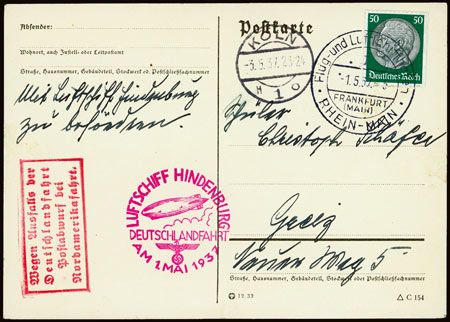 Absender:
Wohnort, auch Zustell- oder Leitpostamt
Straße, Hausnummer, Gebäudeteil, Stockwerk od. Postschließfachnummer
Mit Luftschiff Hindenburg
zu befördern.
Wegen Ausfalls der
Deutschlandfahrt
Postabwurf bei
Nordamerikafahrt.
LUFTSCHIFF HINDENBURG
DEUTSCHLANDFAHRT
AM 1. MAI 1937
Postkarte
KÖLN
-3.5.37. 23-24
H 1 o
50 50
Deutsches Reich
Flug- und
-1.5.37.
FRANKFURT
(MAIN)
RHEIN-MAIN
Schüler
Christoph Schäfer
Neuer Weg 5
Straße, Hausnummer, Gebäudeteil, Stockwerk oder Postschließfachnummer
12.33
C 154